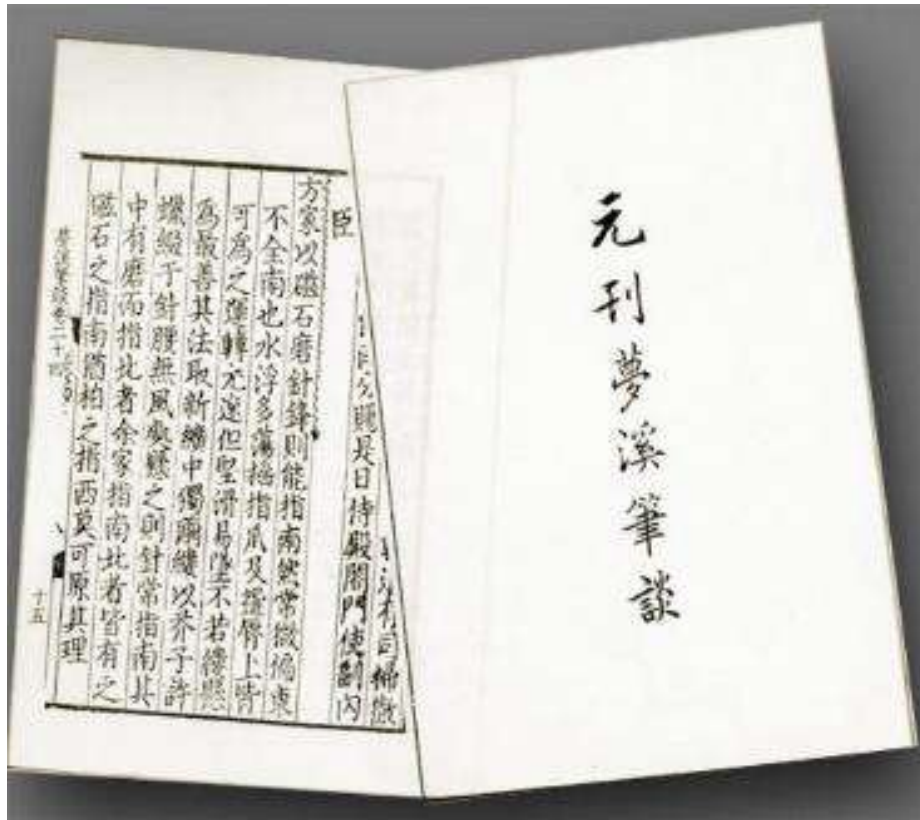 元刊夢溪筆談
有司
是日侍殿閤門使副內
臣
方家以磁石磨針鋒則能指南然常微偏東
不全南也水浮多蕩搖指爪及盌脣上皆
可為之運轉尤速但堅滑易墜不若縷懸
為最善其法取新纊中獨繭縷以芥子許
蠟綴于針腰無風處懸之則針常指南其
中有磨而指北者余家指南北者皆有之
磁石之指南猶柏之指西莫可原其理
夢溪筆談卷二十四
十五